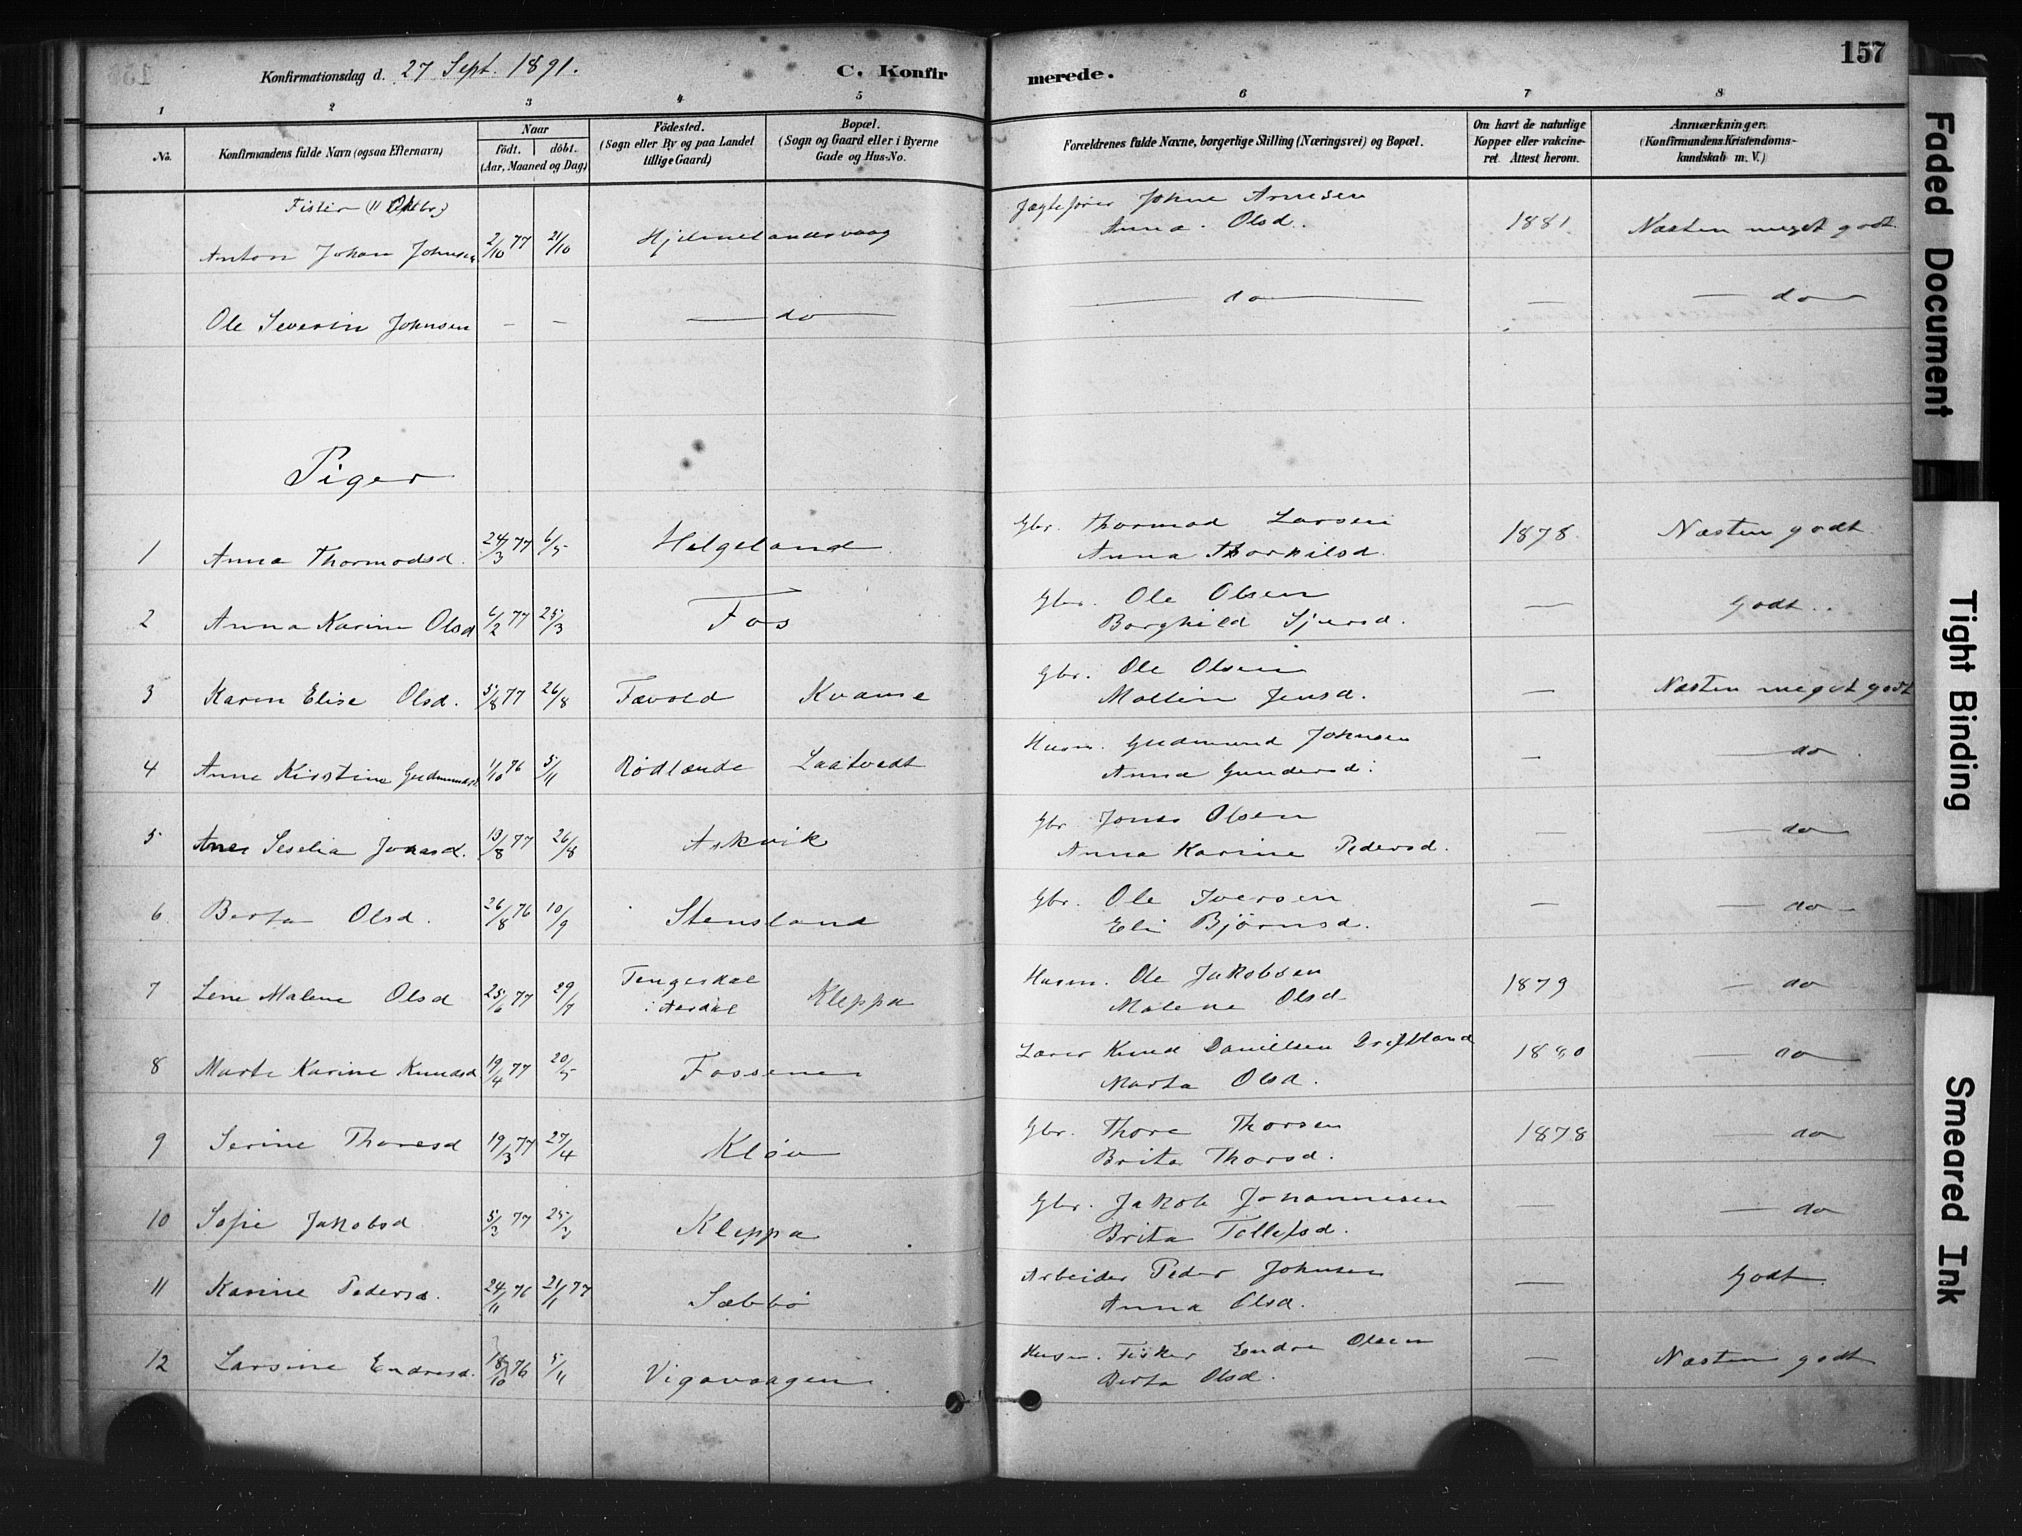 157
Konfirmationsdag d. 27 Sept. 1891. C. Konfirmerede.
1 2 3 4 5 6 7 8
No.
Konfirmandens fulde Navn (ogsaa Efternavn)
Naar
födt. döbt.
(Aar, Maaned og Dag)
Födested.
(Sogn eller By og paa Landet
tillige Gaard)
Bopæl.
(Sogn og Gaard eller i Byerne
Gade og Hus-No.
Forældrenes fulde Navne, borgerlige Stilling (Næringsvei) og Bopæl.
Om havt de naturlige
Kopper eller vakcine-
ret. Attest herom.
Anmærkninger.
(Konfirmandens Kristendoms-
kundskab m. V.)
Fister (11 Oktbr.)
Anton Johan Johnsen 2/10 77 21/10 Hjelmelandsvaag Jægtefører Johne Arnesen
Anna Olsd. 1881 Næsten meget godt
Ole Severin Johnsen - - do do — do
Piger
1 Anna Thormodsd. 24/3 77 6/5 Helgeland Gbr. Thormod Larsen
Anna Thorkilsd. 1878 Næsten godt
2 Anna Karine Olsd 6/2 77 25/3 Fos Gbr. Ole Olsen
Borghild Sjursd. — Godt.
3 Karen Elise Olsd. 5/8 77 26/8 Tævold Kvame Gbr. Ole Olsen
Mallin Jensd. — Næsten meget godt
4 Anne Kirstine Gudmundsd 1/10 76 5/11 Rødlande Laatvedt Husm. Gudmund Johnsen
Anna Gundersd. — do
5 Anes Seselia Jonasd. 13/8 77 26/8 Askvik Gbr Jonas Olsen
Anna Karine Pedersd. — do
6 Berta Olsd. 26/8 76 10/9 Stensland Gbr. Ole Iversen
Eli Bjørnsd. — do
7 Lene Malene Olsd 25/6 77 29/7 Tengesdal
i Aardal Kleppa Husm. Ole Jakobsen
Malene Olsd 1879 do
8 Marte Karine Knudsd 19/4 77 20/5 Fossene Lærer Knud Danielsen
Marta Olsd. 1880 do
9 Serine Thoresd 19/3 77 27/4 Kløv Gbr. Thore Thorsen
Brita Thorsd. 1878 do
10 Sofie Jakobsd 5/3 77 25/3 Kleppa Gbr. Jakob Johannesen
Brita Tollefsd. — do
11 Karine Pedersd. 24/11 76 21/1 77 Sæbbø Arbeider Peder Johnsen
Anna Olsd. — Godt.
12 Larsine Endresd. 18/10 76 5/11 Vigavaagen Husm. Fisker Endre Olsen
Berta Olsd. — Næsten godt
Faded Document
Tight Binding
Smeared Ink